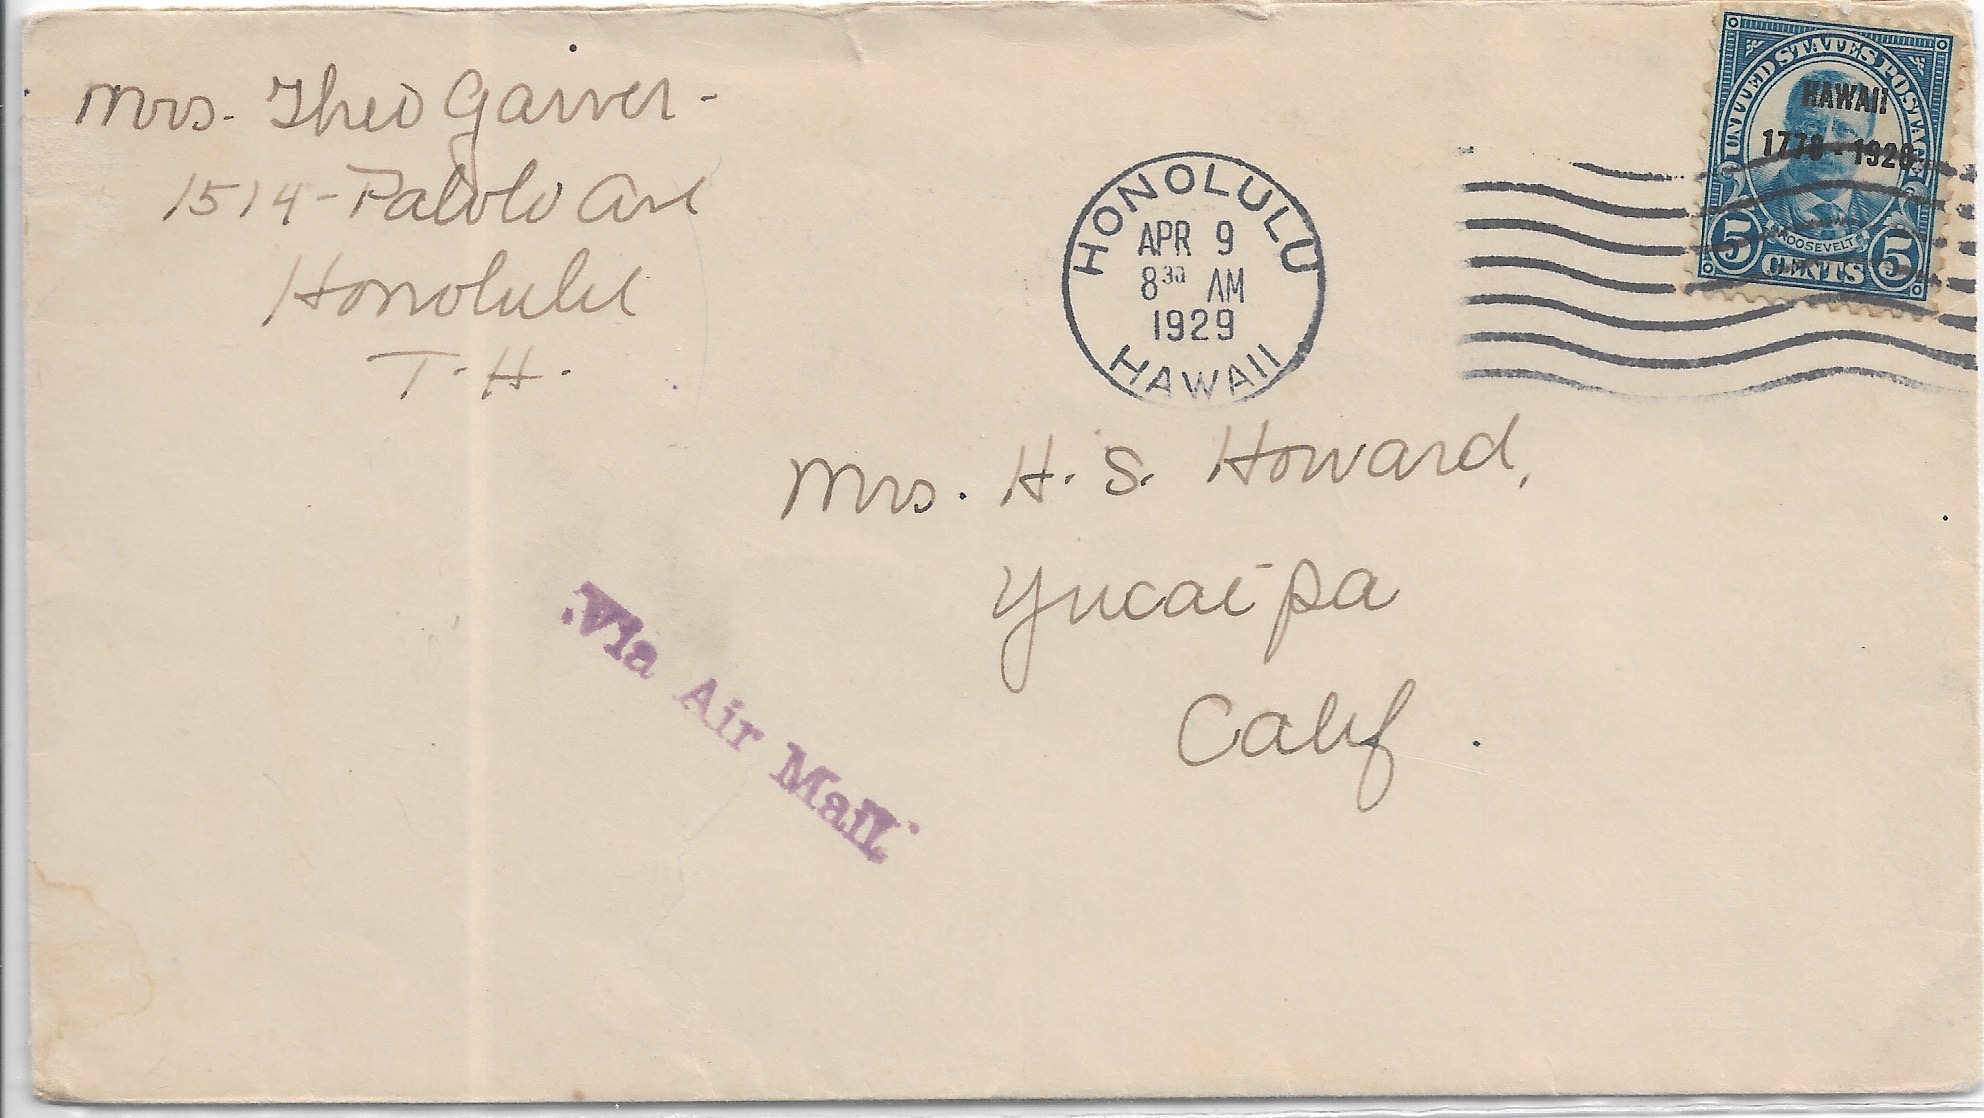 Mrs. Theo Garver -
1514 - Palolo Ave
Honolulu
T. H.
HONOLULU
APR 9
8 30 AM
1929
HAWAII
UNITED STATES POSTAGE
HAWAII
1778 - 1928
ROOSEVELT
5 CENTS 5
Mrs. H. S. Howard,
Yucaipa
Calif.
Via Air Mail.